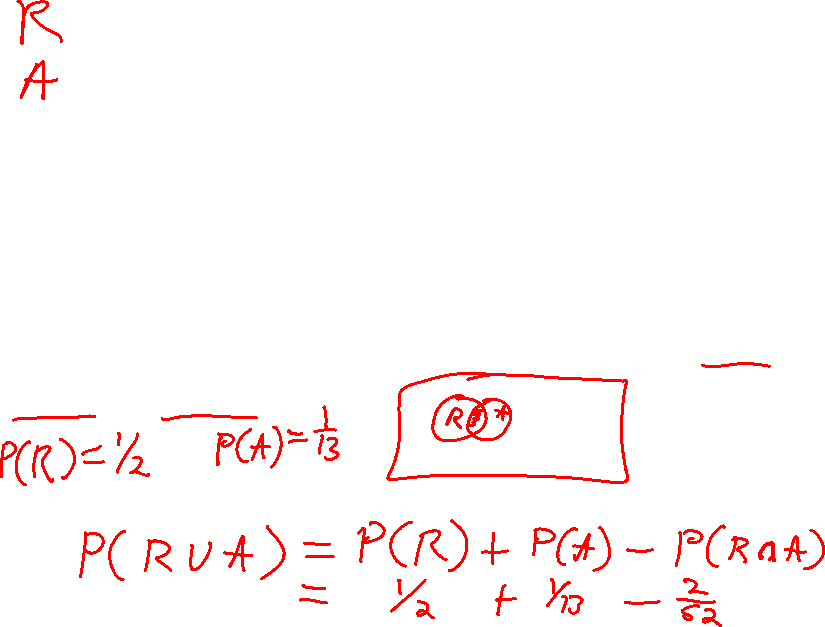 R
A
R A
P(R) = 1/2 P(A) = 1/13
P(R ∪ A) = P(R) + P(A) − P(R ∩ A)
= 1/2 + 1/13 − 2/52